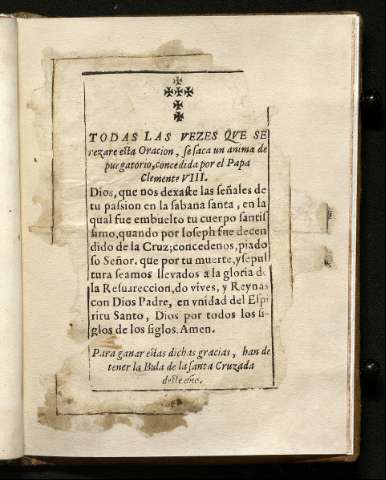 TODAS LAS VEZES QVE SE
rezare esta Oracion, se saca un anima de
purgatorio, concedida por el Papa
Clemente VIII.
Dios, que nos dexaste las señales de
tu passion en la sabana santa, en la
qual fue embuelto tu cuerpo santis
simo, quando por Ioseph fue decen
dido de la Cruz; concedenos, piado
so Señor. que por tu muerte, y sepul
tura seamos llevados a la gloria de
la Resureccion, do vives, y Reynas
con Dios Padre, en vnidad del Espi
ritu Santo, Dios por todos los si-
glos de los siglos. Amen.
Para ganar estas dichas gracias, han de
tener la Bula de la santa Cruzada
deste año.